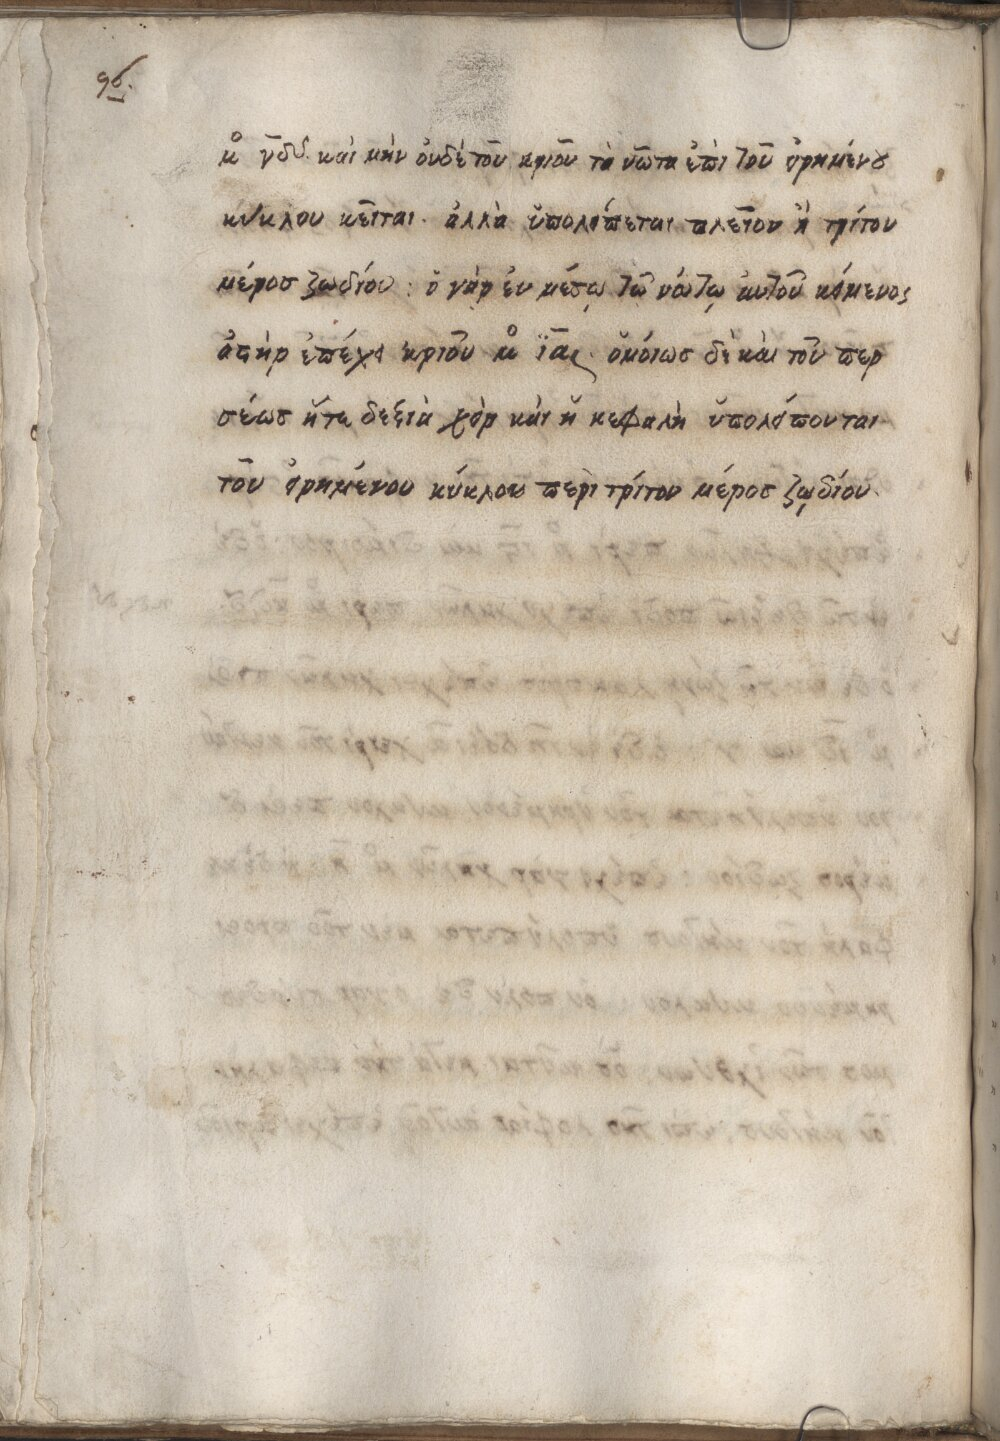 96.
μ̊ γ̅δδ. καὶ μὴν ὀυδὲ τοῦ κριοῦ τὰ νῶτα ἐπὶ τοῦ ἐιρημένου
κύκλου κεῖται. ἀλλὰ ὑπολείπεται πλεῖον ἢ τρίτον
μέροσ ζωδίου: ὁ γὰρ ἐν μέσῳ τῷ νώτῳ ἀυτοῦ κείμενος
ἀστὴρ ἐπέχει κριοῦ μ̊ ι̅α̅ς. ὁμοίωσ δὲ καὶ τοῦ περ
σέωσ ἥτε δεξιὰ χεὶρ καὶ ἡ κεφαλὴ ὑπολείπονται
τοῦ ἐιρημένου κύκλου περὶ τρίτον μέροσ ζῳδίου.